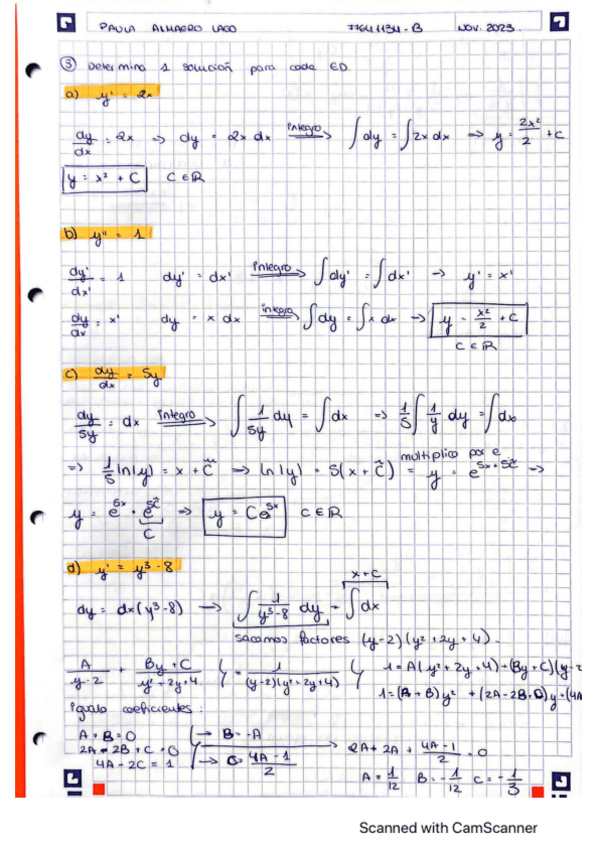 PAULA ALMAGRO LAGO 77641134-B NOV. 2023.
③ Determina 1 solución para cada ED.
a) y' = 2x
dy/dx = 2x => dy = 2x dx integro => ∫dy = ∫2x dx => y = 2x²/2 + C
y = x² + C C ∈ ℝ
b) y'' = 1
dy'/dx' = 1 dy' = dx' integro => ∫dy' = ∫dx' → y' = x'
dy/dx = x' dy = x dx integro => ∫dy = ∫x dx → y = x²/2 + C
C ∈ ℝ
c) dy/dx = 5y
dy/5y = dx integro => ∫ 1/5y dy = ∫dx => 1/5 ∫ 1/y dy = ∫dx
=> 1/5 ln|y| = x + C̃ → ln|y| = 5(x + C̃) multiplico por e = y = e^(5x+5C̃) →
y = e^5x · e^5C̃ => y = Ce^5x C ∈ ℝ
C
d) y' = y³ - 8
x + C
dy = dx(y³-8) → ∫ 1/y³-8 dy = ∫dx
sacamos factores (y-2)(y²+2y+4).
A/y-2 + By+C/y²+2y+4 } = 1/(y-2)(y²+2y+4) } 1 = A(y²+2y+4)+(By+C)(y-2
1=(A+B)y² + (2A-2B+C)y+(4A
Igualo coeficientes:
A+B=0 → B=-A
2A-2B+C=0 2A+2A+ 4A-1/2 = 0
4A-2C=1 → C= 4A-1/2
A = 1/12 B = -1/12 C = -1/3
Scanned with CamScanner